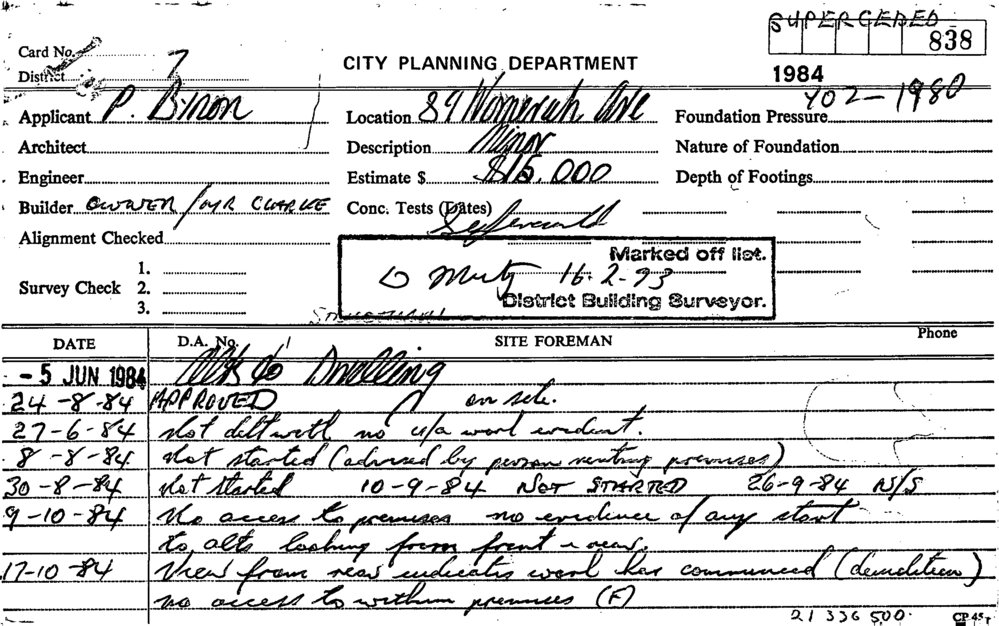 SUPERCEDED
838
Card No.
District 7
CITY PLANNING DEPARTMENT
1984
402-1980
Applicant P. Byron
Location 89 Womerah Ave
Foundation Pressure
Architect
Description Minor
Nature of Foundation
Engineer
Estimate $ $15,000
Depth of Footings
Builder OWNER / MR CLARKE
Conc. Tests (Dates)
Alignment Checked
Marked off list.
16-2-93
District Building Surveyor.
Survey Check 1.
2.
3.
DATE D.A. No. SITE FOREMAN Phone
- 5 JUN 1984 Alts to Dwelling
24-8-84 APPROVED on site.
27-6-84 Not delt with no u/a work evident.
8-8-84 Not started (advised by person renting premises)
30-8-84 Not started 10-9-84 NOT STARTED 26-9-84 N/S
9-10-84 No access to premises no evidence of any start
to alts looking from front & rear.
17-10-84 View from rear indicates work has commenced (demolition)
no access to within premises (F)
21 336 500.
CP 45